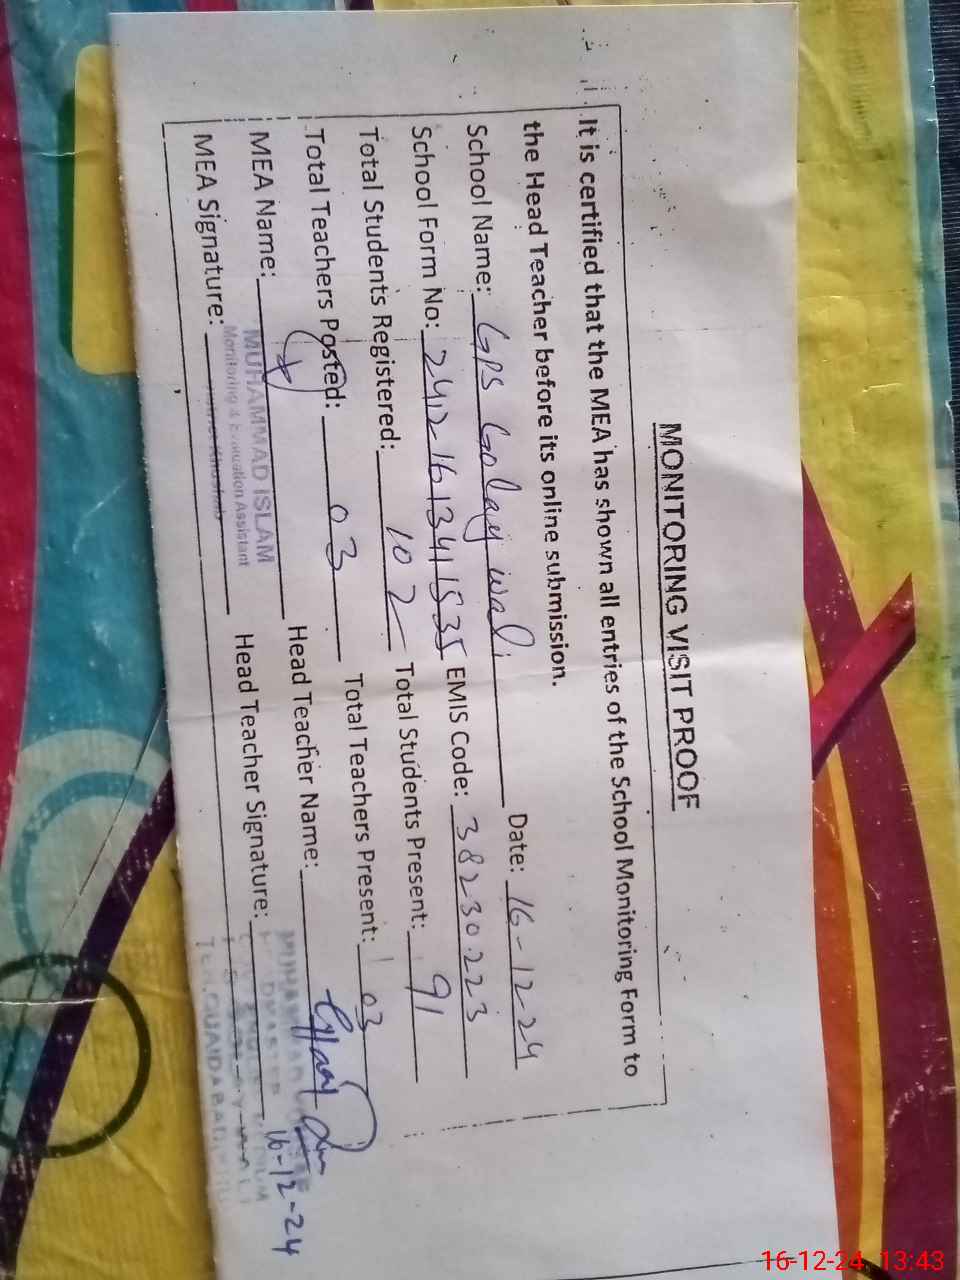 MONITORING VISIT PROOF
It is certified that the MEA has shown all entries of the School Monitoring Form to
the Head Teacher before its online submission.
School Name: GPS Golay wali Date: 16-12-24
School Form No: 2412161341535 EMIS Code: 38230223
Total Students Registered: 102 Total Students Present: 91
Total Teachers Posted: 03 Total Teachers Present: 03
MEA Name: MUHAMMAD ISLAM Head Teacher Name:
Monitoring & Evaluation Assistant
MEA Signature: Head Teacher Signature:
16-12-24
16-12-24, 13:43